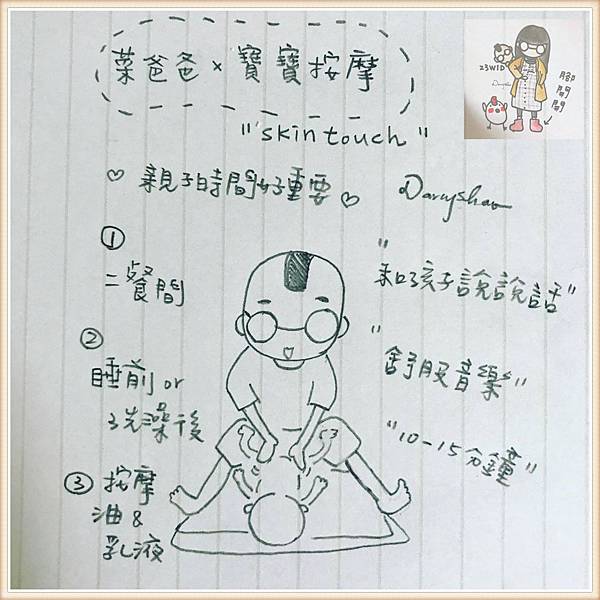 菜爸爸 × 寶寶按摩
"skin touch"
♡ 親子時間好重要 ♡
Darrysha
① 二餐間
② 睡前 or 洗澡後
③ 按摩油 & 乳液
"和孩子說說話"
"舒服音樂"
"10-15分鐘"
23WID
腳開開